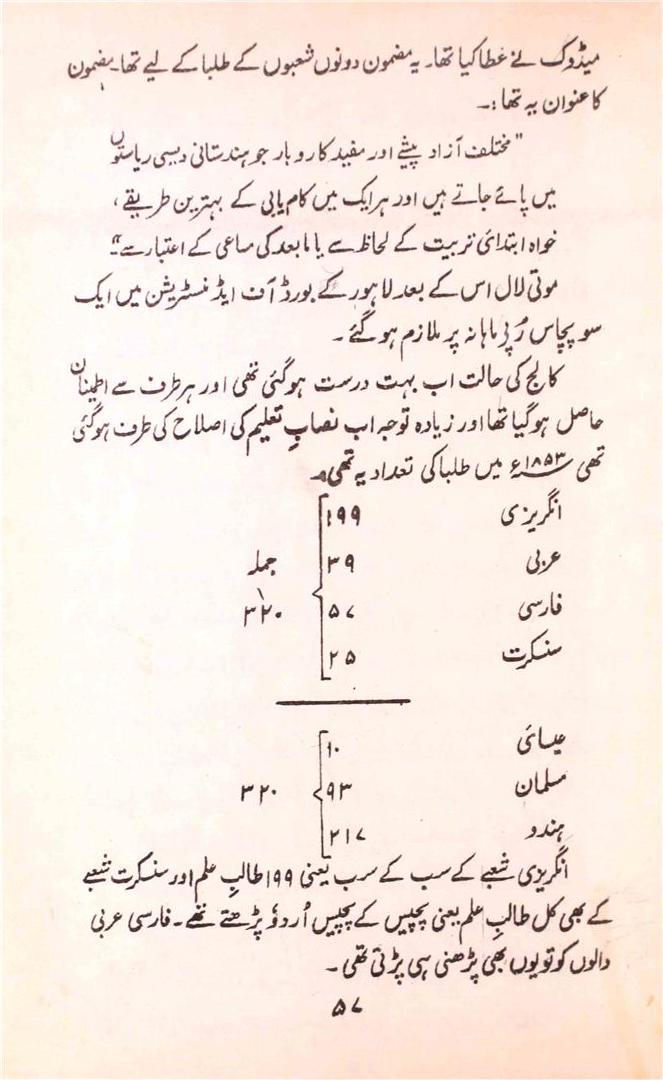 میڈوک نے عطا کیا تھا۔ یہ مضمون دونوں شعبوں کے طلبا کے لیے تھا۔ مضمون
کا عنوان یہ تھا :۔
”مختلف آزاد پیشے اور مفید کاروبار جو ہندستانی دیسی ریاستوں
میں پائے جاتے ہیں اور ہر ایک میں کام یابی کے بہترین طریقے ،
خواہ ابتدائی تربیت کے لحاظ سے یا مابعد کی مساعی کے اعتبار سے“۔
موتی لال اس کے بعد لاہور کے بورڈ آف ایڈمنسٹریشن میں ایک
سو پچاس رُپی ماہانہ پر ملازم ہو گئے ۔
کالج کی حالت اب بہت درست ہو گئی تھی اور ہر طرف سے اطمینان
حاصل ہو گیا تھا اور زیادہ توجہ اب نصابِ تعلیم کی اصلاح کی طرف ہو گئی
تھی ۱۸۵۳ء میں طلبا کی تعداد یہ تھی۔
انگریزی ۱۹۹
عربی ۳۹ جملہ
فارسی ۵۷ ۳۲۰
سنسکرت ۲۵
عیسائی ۱۰
مسلمان ۹۳ ۳۲۰
ہندو ۲۱۷
انگریزی شعبے کے سب کے سب یعنی ۱۹۹ طالبِ علم اور سنسکرت شعبے
کے بھی کل طالبِ علم یعنی پچیس کے پچیس اُردو پڑھتے تھے۔ فارسی عربی
والوں کو تو یوں بھی پڑھنی ہی پڑتی تھی ۔
۵۷